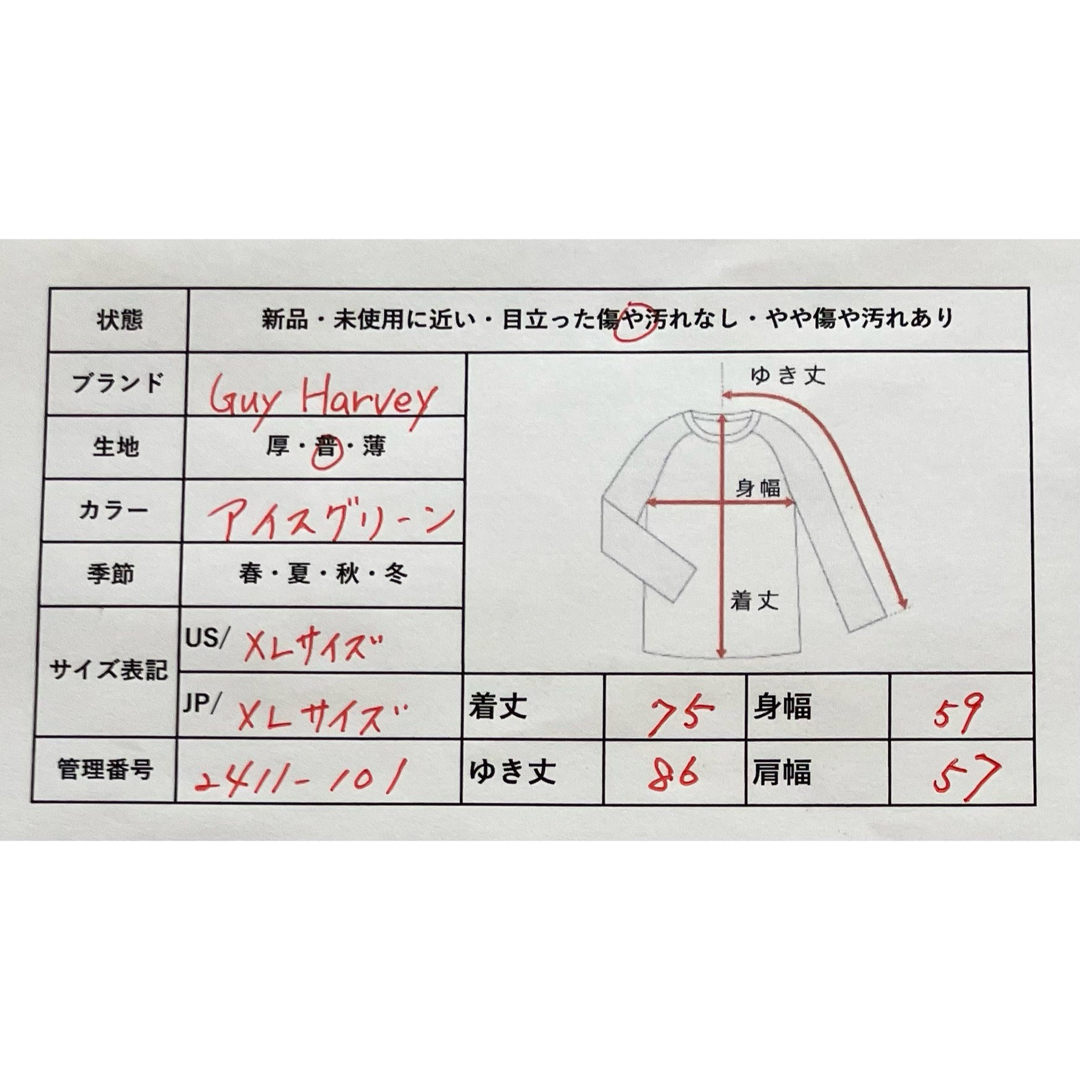 状態 新品・未使用に近い・目立った傷や汚れなし・やや傷や汚れあり
ブランド Guy Harvey
生地 厚・普・薄
カラー アイスグリーン
季節 春・夏・秋・冬
サイズ表記 US/ XLサイズ
JP/ XLサイズ
管理番号 2411-101
ゆき丈
身幅
着丈
着丈 75 身幅 59
ゆき丈 86 肩幅 57